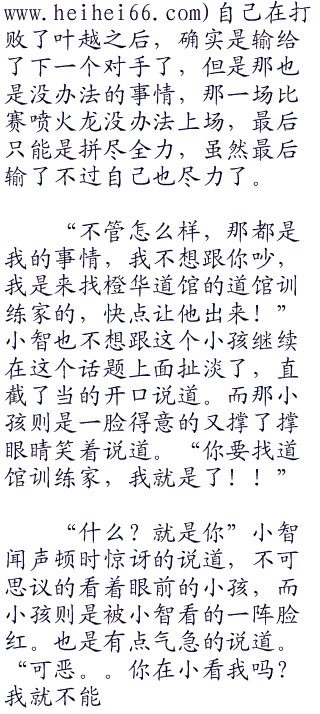 www.heihei66.com)自己在打
败了叶越之后，确实是输给
了下一个对手了，但是那也
是没办法的事情，那一场比
赛喷火龙没办法上场，最后
只能是拼尽全力，虽然最后
输了不过自己也尽力了。
“不管怎么样，那都是
我的事情，我不想跟你吵，
我是来找橙华道馆的道馆训
练家的，快点让他出来！”
小智也不想跟这个小孩继续
在这个话题上面扯淡了，直
截了当的开口说道。而那小
孩则是一脸得意的又撑了撑
眼睛笑着说道。“你要找道
馆训练家，我就是了！！”
“什么？就是你”小智
闻声顿时惊讶的说道，不可
思议的看着眼前的小孩，而
小孩则是被小智看的一阵脸
红。也是有点气急的说道。
“可恶。。你在小看我吗？
我就不能